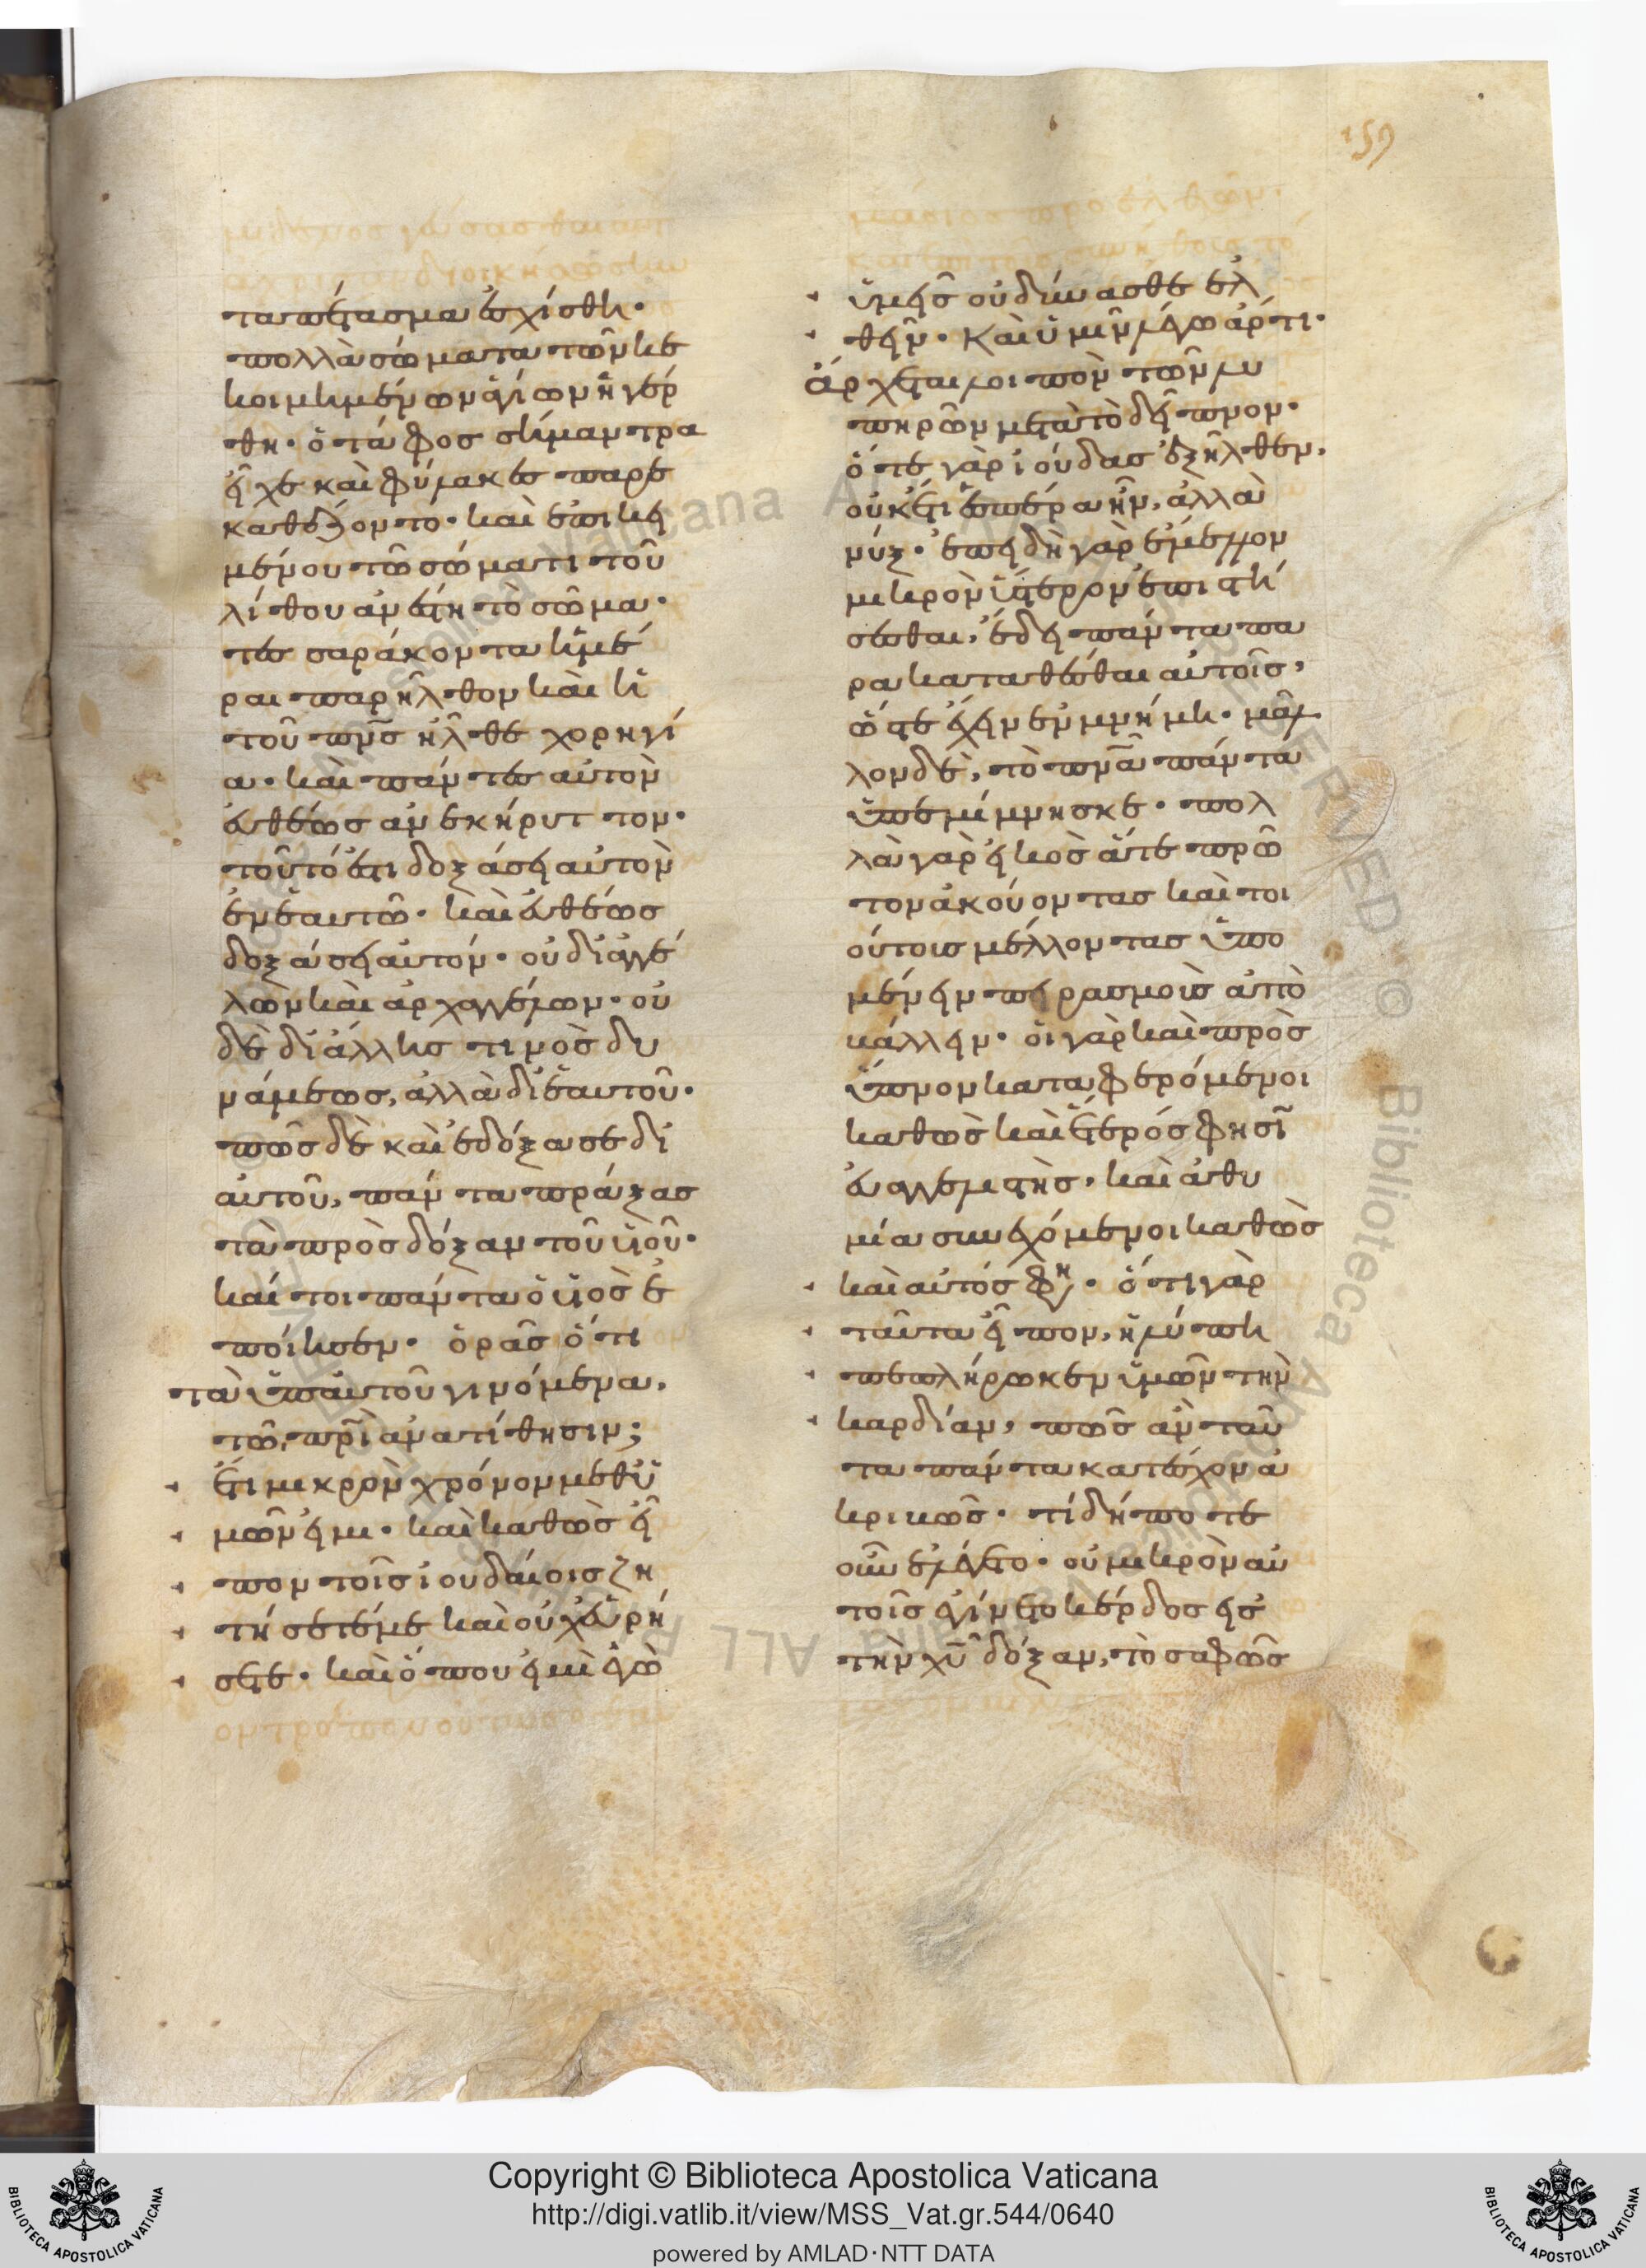 159
ταπέτασμα ἐσχίσθη·
πολλὰ σώματα τῶν κε
κοιμημένων ἁγίων ἠγέρ
θη· ὁ τάφος σήμαντρα
εἶχε καὶ φύλακες παρε
καθέζοντο· καὶ ἐπικει
μένου τῶ σώματι τοῦ
λίθου ἀνέστη τὸ σῶμα·
τεσσαράκοντα ἡμέ
ραι παρῆλθον καὶ ἡ
τοῦ πνς ἦλθε χορηγί
α· καὶ πάντες αὐτὸν
εὐθέως ἀνεκήρυττον·
τοῦτό ἐστι δοξάσει αὐτὸν
ἐν ἑαυτῶ· καὶ εὐθέως
δοξάσει αὐτόν· οὐ δι ἀγγέ
λων καὶ ἀρχαγγέλων· οὐ
δὲ δι ἄλλης τινὸς δυ
νάμεως, ἀλλὰ δι ἑαυτοῦ·
πῶς δὲ καὶ ἐδόξασε δι
αὐτοῦ, πάντα πράξας
τὰ πρὸς δόξαν τοῦ υἱοῦ·
καίτοι πάντα ὁ υἱὸς ἐ
ποίησεν· ὁρᾶς ὅτι
τὰ ὑπ αὐτοῦ γινόμενα,
τῶ πρὶ ἀνατίθησιν;
ἔτι μικρὸν χρόνον μεθ ὑ
μῶν εἰμι· καὶ καθὼς εἶ
πον τοῖς ἰουδαίοις ζη
τήσετέ με καὶ οὐχ εὑρή
σετε· καὶ ὅπου εἰμὶ ἐγὼ
ὑμεῖς οὐ δύνασθε ἐλ
θεῖν· καὶ ὑμῖν λέγω ἄρτι·
ἄρχεται λοιπὸν τῶν λυ
πηρῶν μετὰ τὸ δεῖπνον·
ὅτε γὰρ ἰούδας ἐξῆλθεν,
οὐκέτι ἑσπέρα ἦν, ἀλλὰ
νύξ· ἐπειδὴ γὰρ ἔμελλον
μικρὸν ὕστερον ἐπιστή
σεσθαι, ἔδει πάντα πα
ρακαταθέσθαι αὐτοῖς,
ὥστε ἔχειν ἐν μνήμη· μᾶλ
λον δὲ, τὸ πνα πάντα
ὑπεμίμνησκε· πολ
λὰ γὰρ εἰκὸς ἅτε πρῶ
τον ἀκούοντας καὶ τοι
ούτοις μέλλοντας ὑπο
μένειν πειρασμοῖς ἀπο
βάλλειν· οἱ γὰρ καὶ πρὸς
ὕπνον καταφερόμενοι
καθὼς καὶ ἕτερός φησϊ
εὐαγγελιστὴς· καὶ ἀθυ
μία συνεχόμενοι καθὼς
καὶ αὐτός φη· ὅτι γὰρ
ταῦτα εἶπον, ἡ λύπη
πεπλήρωκεν ὑμῶν τὴν
καρδίαν, πῶς ἂν ταῦ
τα πάντα κατέσχον ἀ
κριβῶς· τί δήποτε
οὖν ἐλέγετο· οὐ μικρὸν αὐ
τοῖς ἐγίνετο κέρδος εἰς
τὴν χυ δόξαν, τὸ σαφῶς
Copyright © Biblioteca Apostolica Vaticana
http://digi.vatlib.it/view/MSS_Vat.gr.544/0640
powered by AMLAD·NTT DATA
BIBLIOTECA APOSTOLICA VATICANA
BIBLIOTECA APOSTOLICA VATICANA